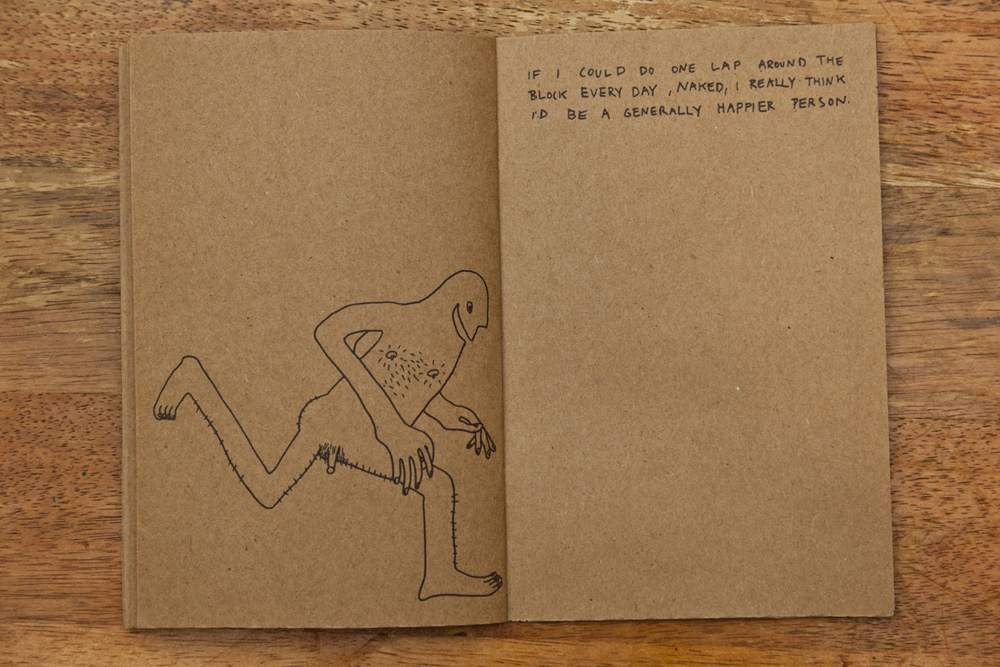 IF I COULD DO ONE LAP AROUND THE
BLOCK EVERY DAY , NAKED, I REALLY THINK
I'D BE A GENERALLY HAPPIER PERSON.